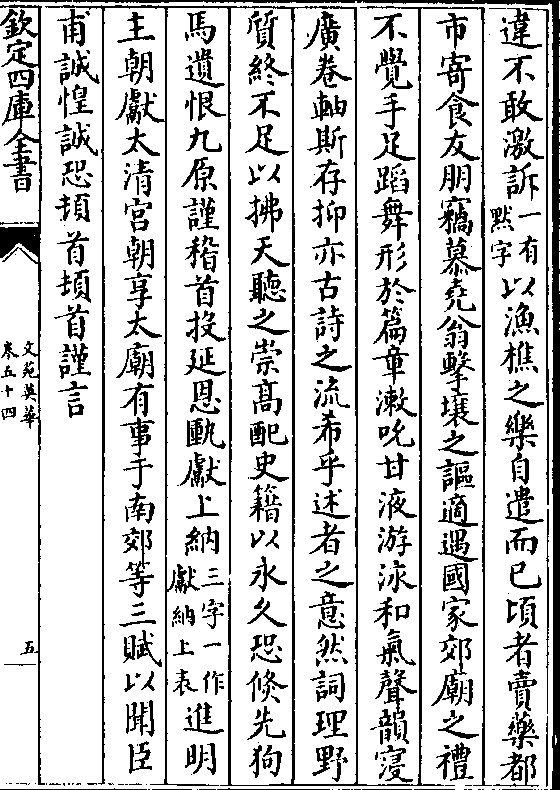 違不敢激訴一有默字以漁樵之樂自遣而已頃者賣藥都
市寄食友朋竊慕堯翁擊壤之謳適遇國家郊廟之禮
不覺手足蹈舞形於篇章漱吮甘液游泳和氣聲韻寖
廣卷軸斯存抑亦古詩之流希乎述者之意然詞理野
質終不足以拂天聽之崇髙配史籍以永久恐倐先狗
馬遺恨九原謹稽首投延恩匭獻上納三字一作獻納上表進明
主朝獻太清宫朝享太廟有事于南郊等三賦以聞臣
甫誠惶誠恐頓首頓首謹言
欽定四庫全書
文苑英華
卷五十四
五